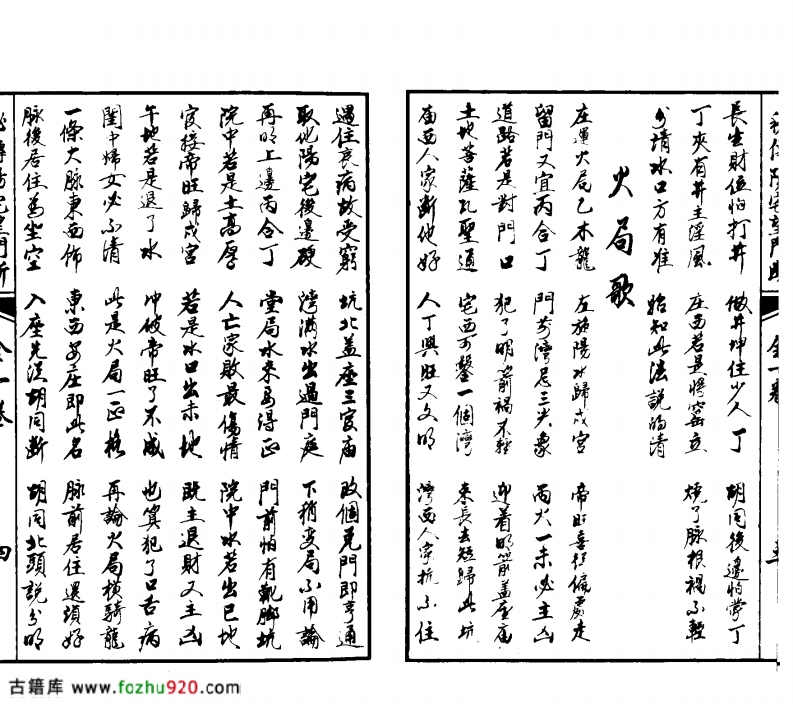 長生財位怕打井 做井坤住少人丁 胡同後邊怕掌丁
丁夾有井主淫風 庄西若是將窑立 燒了脉根禍不輕
分清水口方有准 始知此法說的清
火局歌
庄運火局乙木龍 左旋陽水歸戍宮 帝旺喜行偏處走
留門又宜丙合丁 門前灣尼三尖象 丙火一未必主凶
道路若是對門口 犯了明箭禍不輕 迎着明箭盖座庙
土地菩薩孔聖通 宅西可鑿一個灣 東長去短歸此坑
庙西人家斷他好 人丁興旺又文明 灣西人家抗不住
遇住哀病故受窮 坑北盖座三官庙 改個克門即亨通
取化陽宅後邊硬 灣滿水出過門庭 下稍变局不用論
再明上邊丙合丁 堂局水来為得正 門前怕有靴脚坑
院中若是土高厚 人亡家敗最傷情 院中水若出巳地
官接帝旺歸戍宮 若是水口出未地 既主退財又主凶
午地若是退了水 冲破帝旺了不成 也算犯了口舌病
閨中婦女必不清 此是火局一正格 再論火局横騎龍
一條大脉東西佈 東西安庄即此名 脉前居住還須好
脉後居住為坐空 入座先從胡同斷 胡同北頭說分明
四
古籍库 www.fozhu920.com